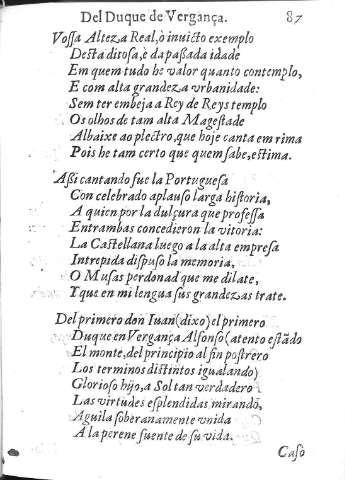 Del Duque de Vergança. 87
Vossa Alteza Real, ò inuicto exemplo
Desta ditosa, è da passada idade
Em quem tudo he valor quanto contemplo,
E com alta grandeza vrbanidade:
Sem ter embeja a Rey de Reys templo
Os olhos de tam alta Magestade
Albaixe ao plectro, que hoje canta em rima
Pois he tam certo que quem sabe, estima.
Assi cantando fue la Portuguesa
Con celebrado aplauso larga historia,
A quien por la dulçura que professa
Entrambas concedieron la vitoria:
La Castellana luego a la alta empresa
Intrepida dispuso la memoria,
O Musas perdonad que me dilate,
Y que en mi lengua sus grandezas trate.
Del primero don Iuan (dixo) el primero
Duque en Vergança Alfonso (atento estādo
El monte, del principio al fin postrero
Los terminos distintos igualando)
Glorioso hijo, a Sol tan verdadero
Las virtudes esplendidas mirando,
Aguila soberanamente vnida
A la perene fuente de su vida.
Casò